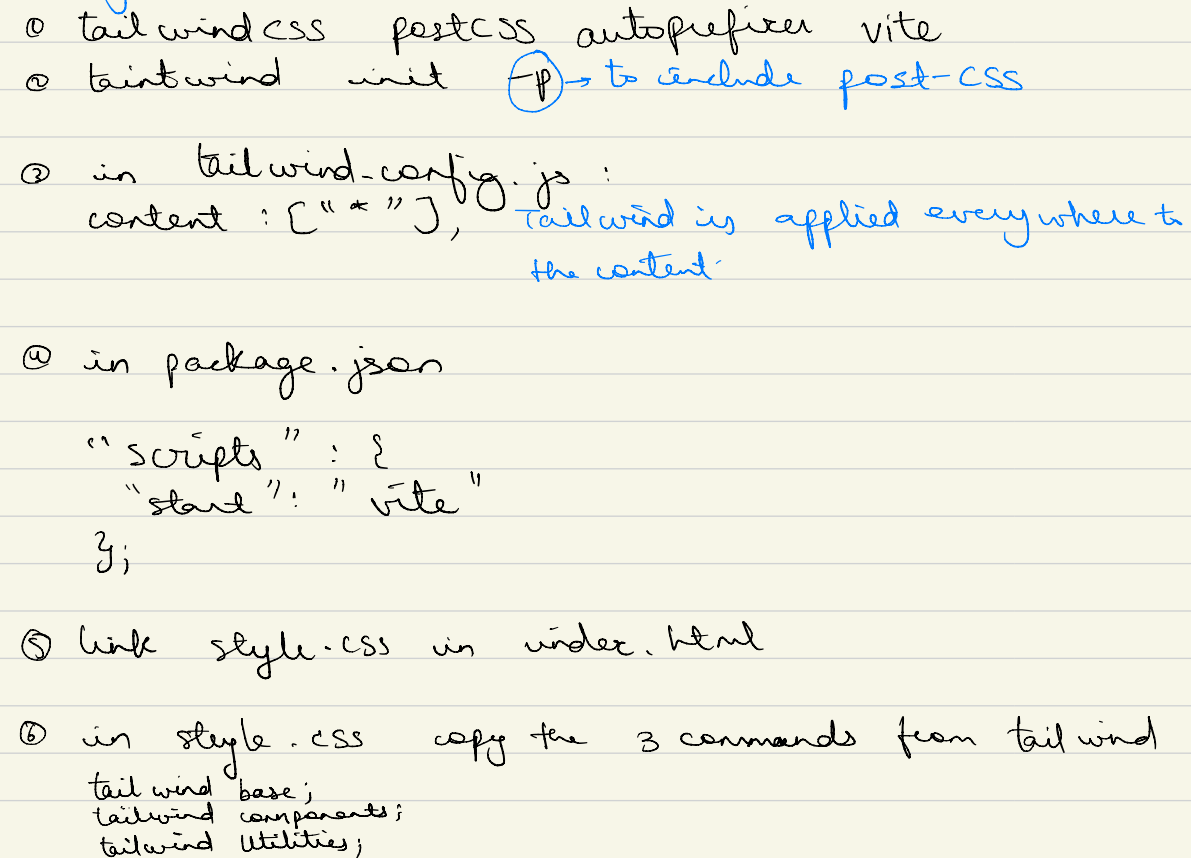 ① tailwindcss postcss autoprefixer vite
② taintwind init -p → to include post-CSS
③ in tailwind-config.js :
content : ["*"], Tailwind is applied everywhere to
the content.
④ in package.json
"scripts" : {
"start" : "vite"
};
⑤ link style.css in index.html
⑥ in style.css copy the 3 commands from tailwind
tailwind base;
tailwind components;
tailwind Utilities;